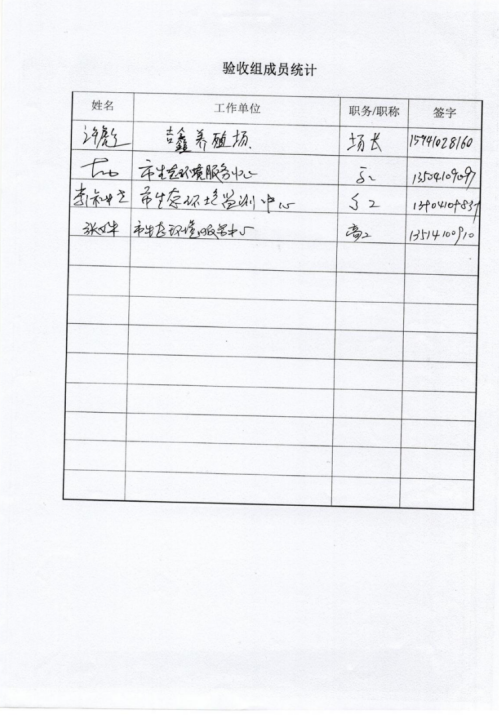 验收组成员统计
姓名 工作单位 职务/职称 签字
吉鑫养殖场 场长 15941028160
市生态环境服务中心 13504109097
市生态环境监测中心
市生态环境服务中心 高工 13514100910